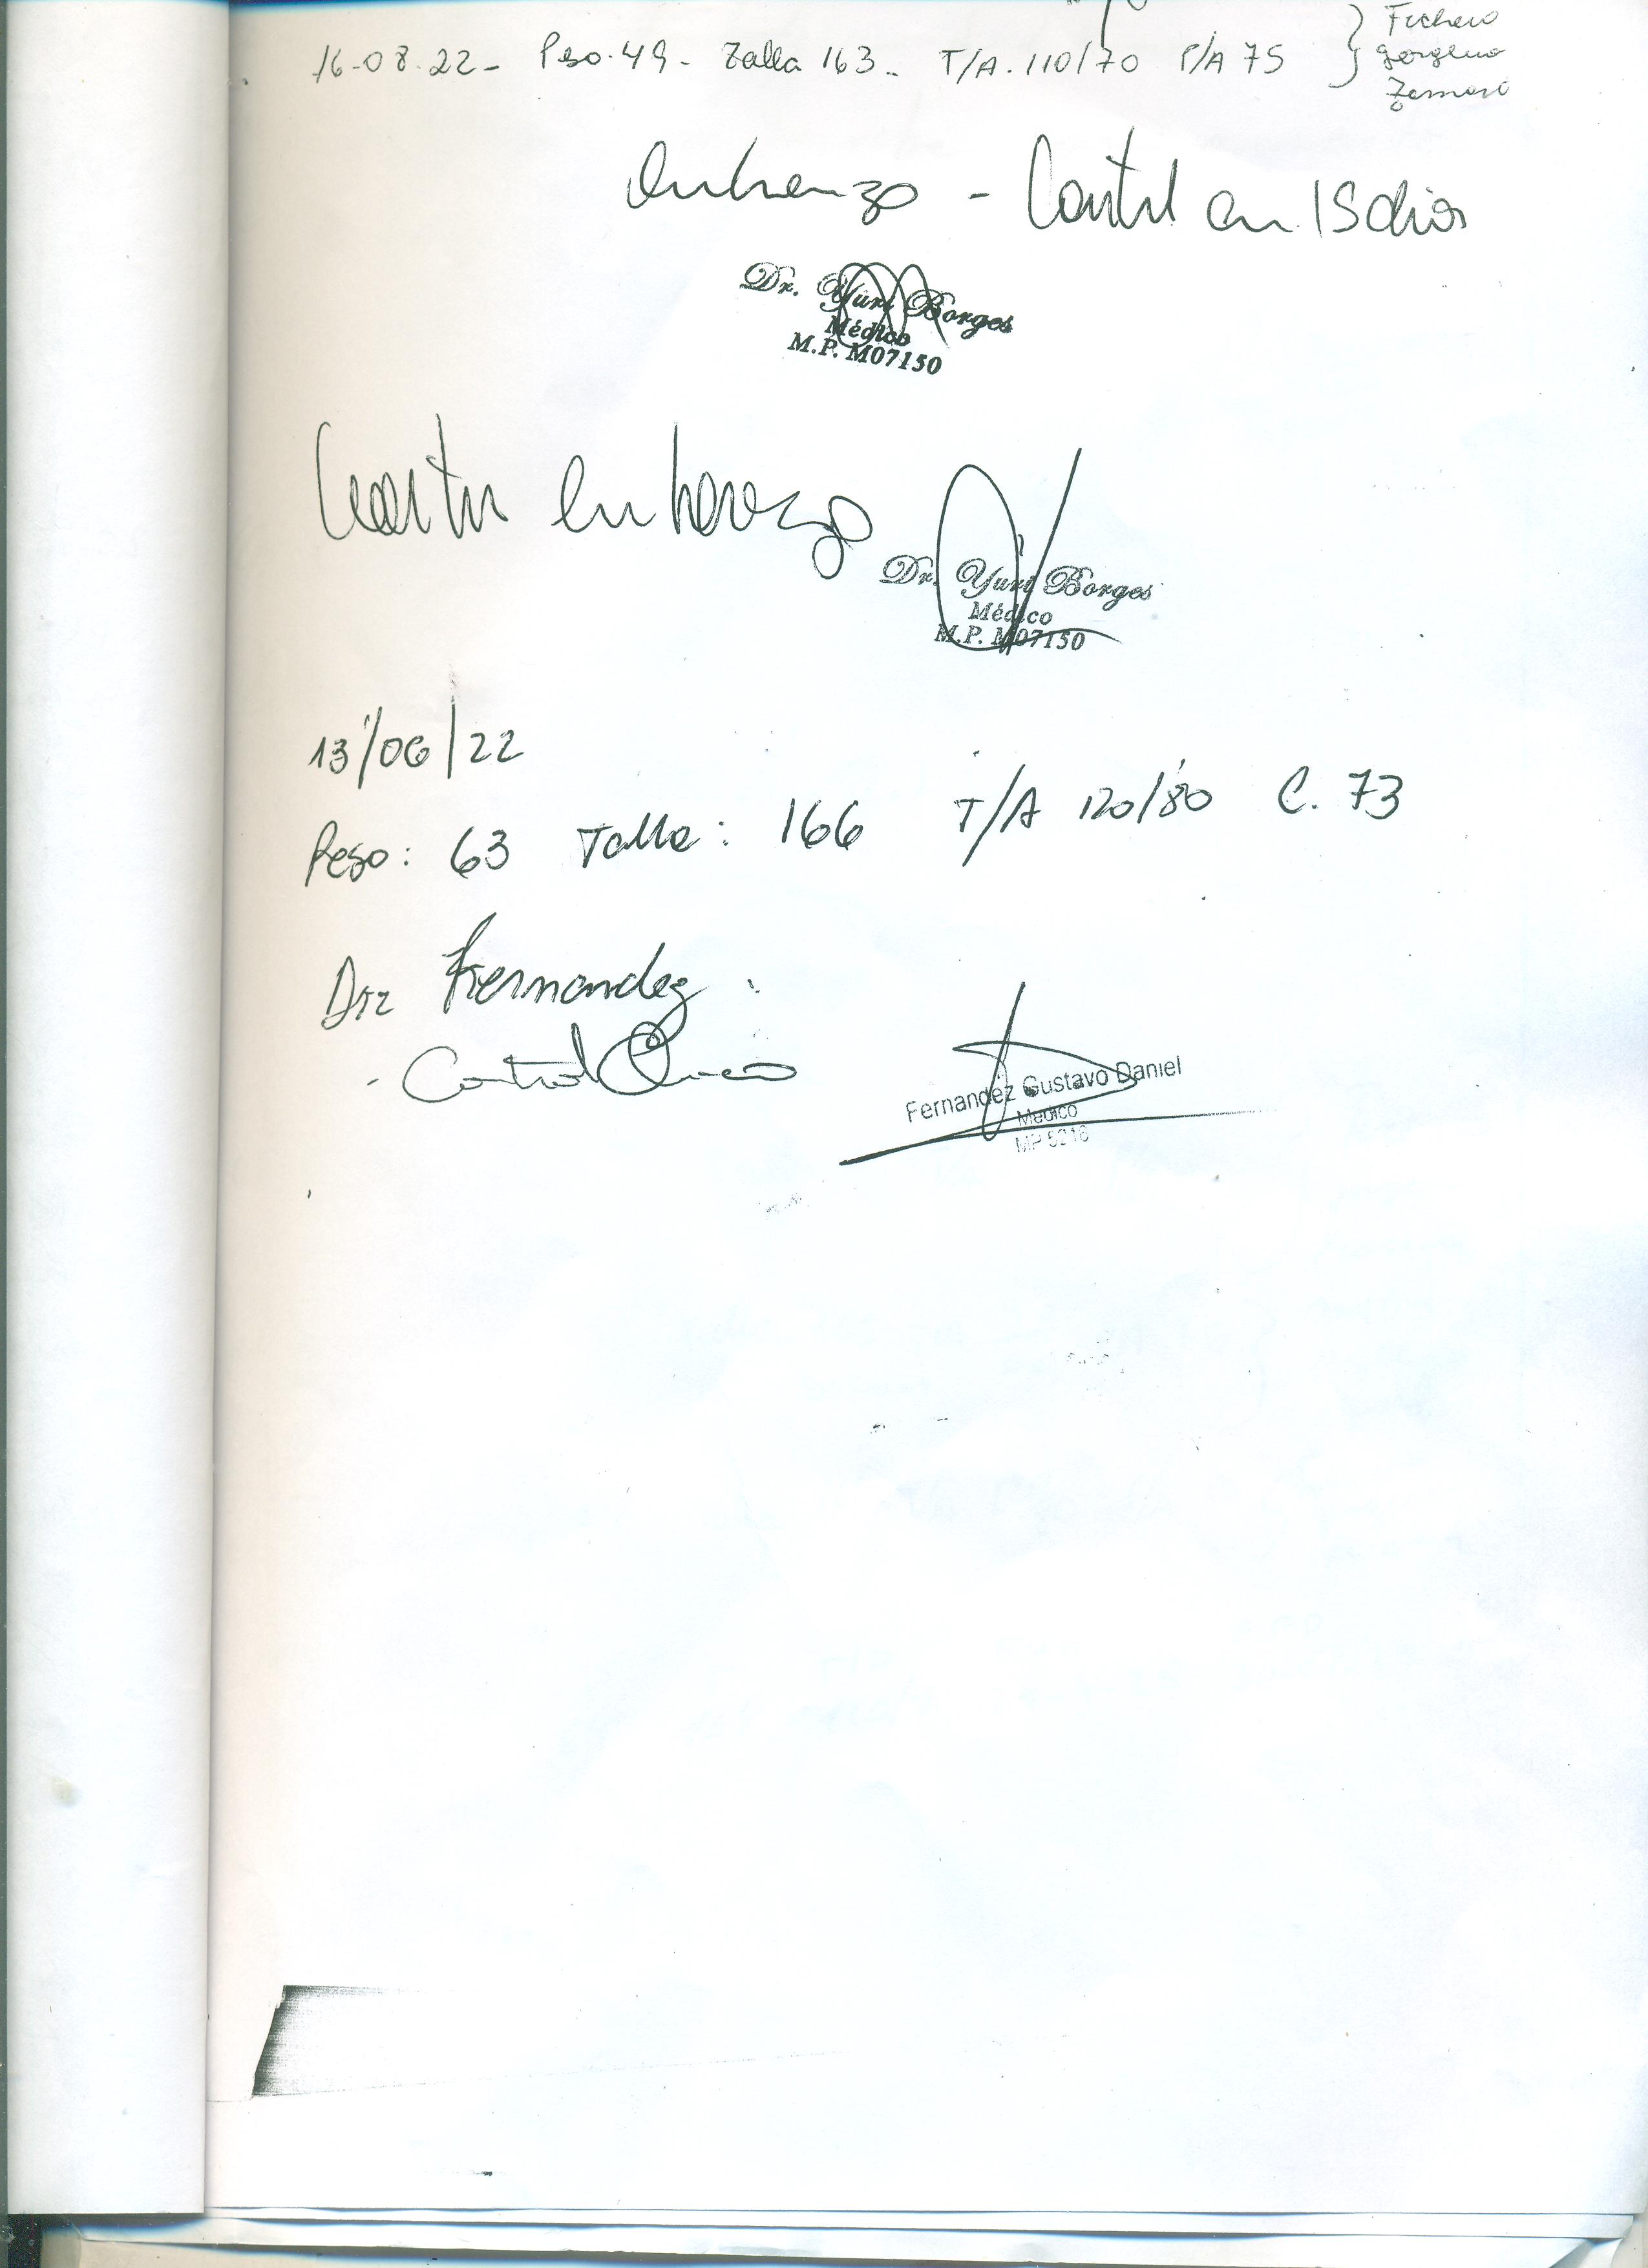 16-08-22- Peso. 49 - Talla 163- T/A. 110/70 P/A 75
embarazo - Control en 15 dias
Dr. Yuri Borges
Médico
M.P. M07150
embarazo
Dr. Yuri Borges
Médico
M.P. M07150
13/06/22
Peso: 63 Talla: 166 T/A 120/80 C. 73
Dr Fernandez:
- Control
Fernandez Gustavo Daniel
Medico
MP 5216